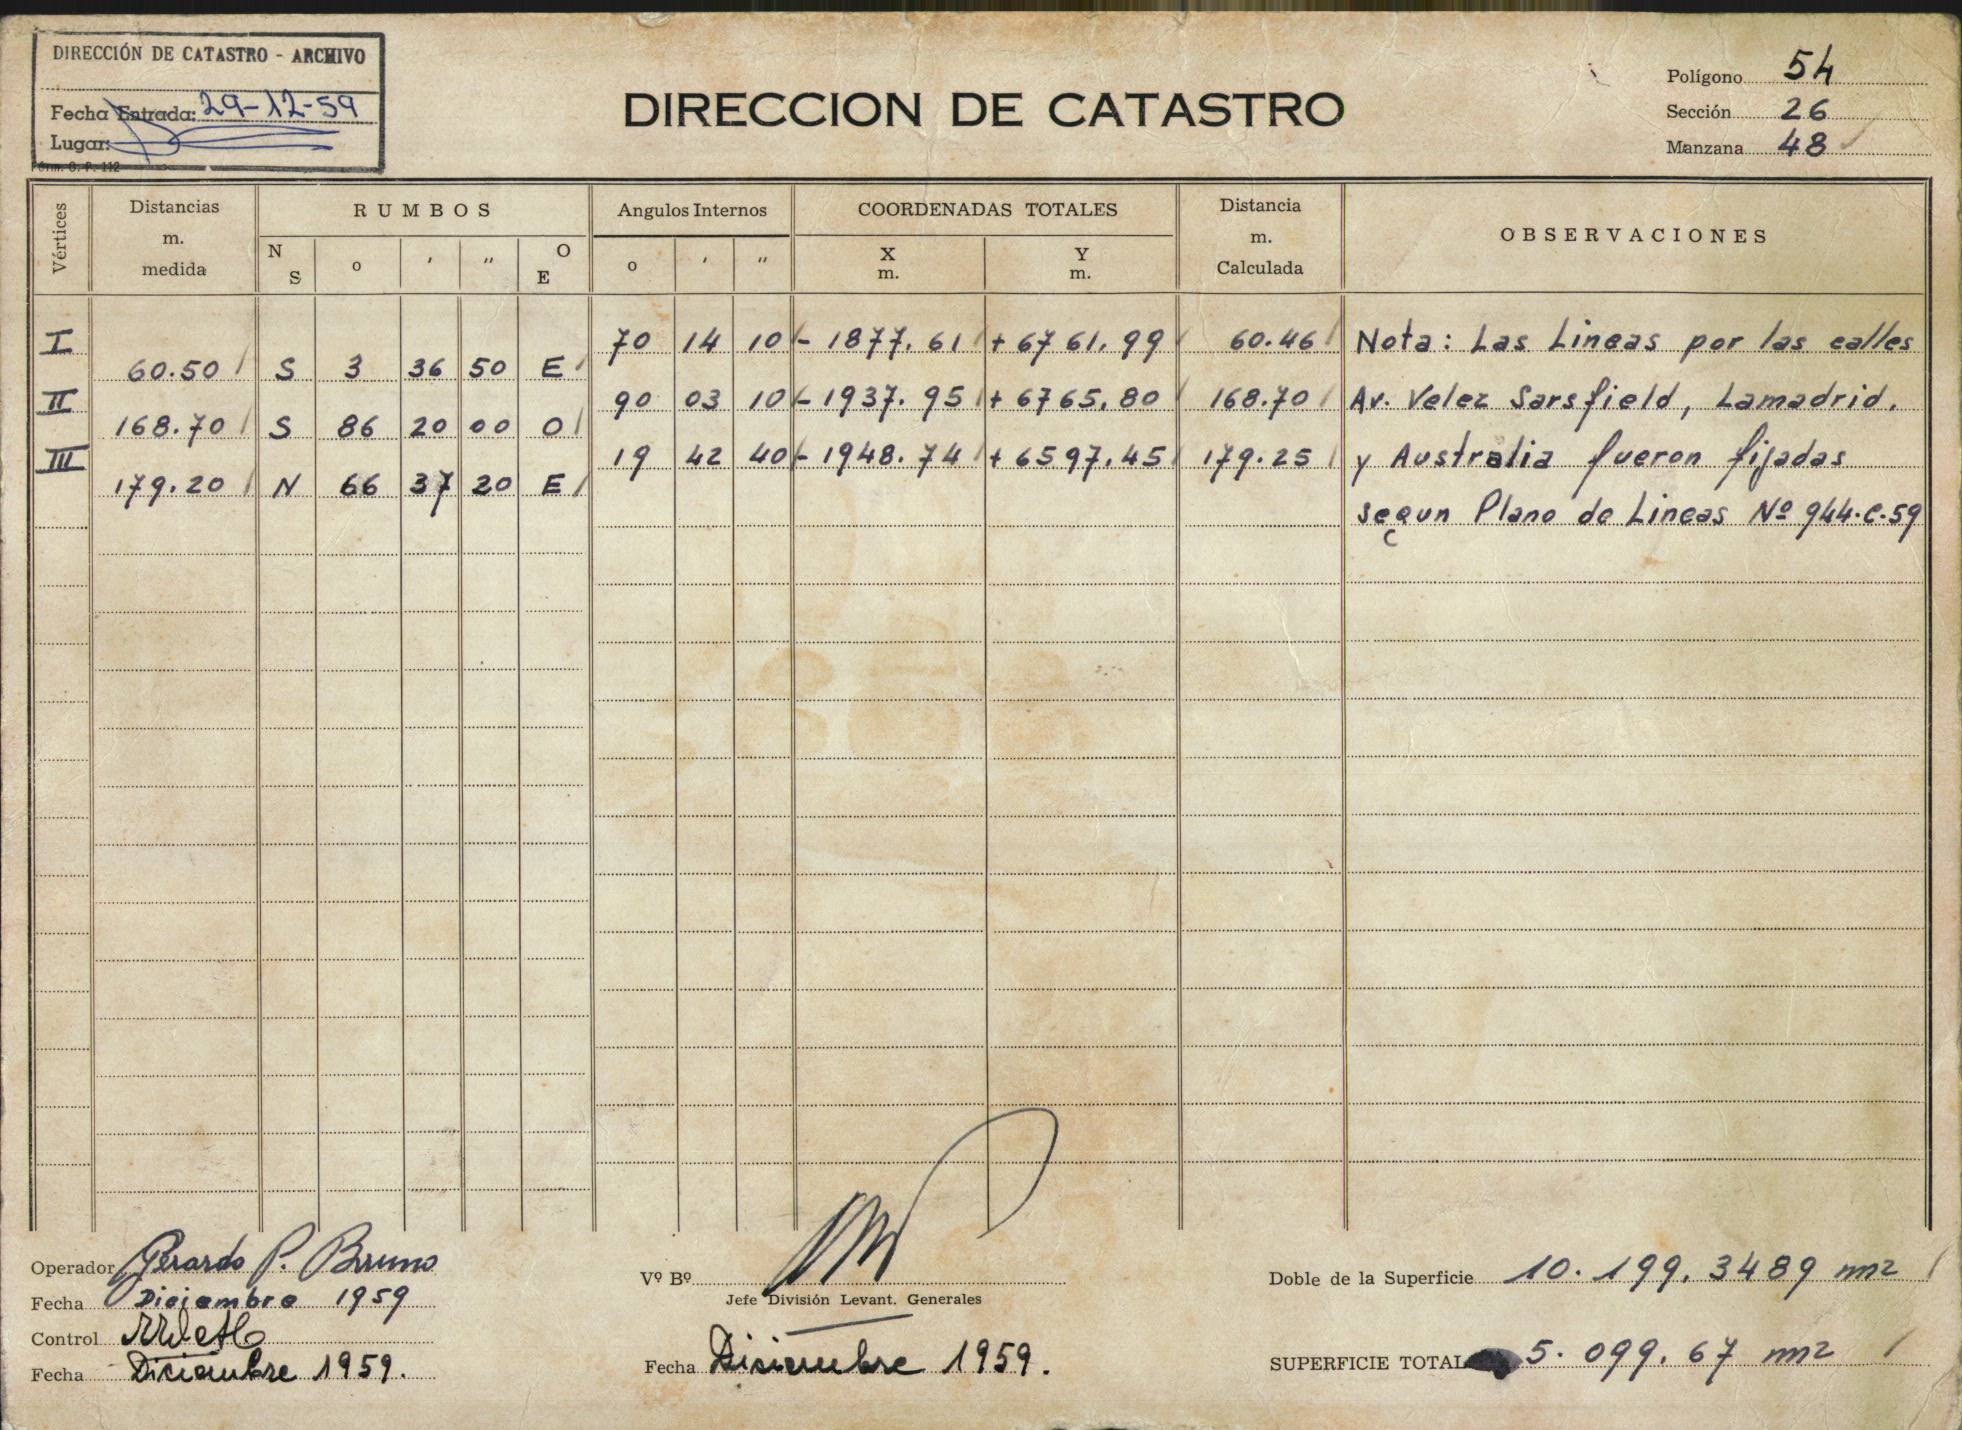 DIRECCIÓN DE CATASTRO - ARCHIVO
Fecha Entrada: 29-12-59
Lugar:
Form. G. P. 112
DIRECCION DE CATASTRO
Polígono 54
Sección 26
Manzana 48
Vértices Distancias m. medida RUMBOS Angulos Internos COORDENADAS TOTALES Distancia m. Calculada OBSERVACIONES
N S o ' " O E o ' " X m. Y m.
I 70 14 10 - 1877.61 + 6761.99 60.46 Nota: Las Lineas por las calles
60.50 S 3 36 50 E
II 90 03 10 - 1937.95 + 6765.80 168.70 Av. Velez Sarsfield, Lamadrid,
168.70 S 86 20 00 O
III 19 42 40 - 1948.74 + 6597.45 179.25 y Australia fueron fijadas
179.20 N 66 37 20 E
segun Plano de Lineas Nº 944.C.59
Operador Gerardo P. Bruno
Fecha Diciembre 1959
Control
Fecha Diciembre 1959.
Vº Bº
Jefe División Levant. Generales
Fecha Diciembre 1959.
Doble de la Superficie 10.199,3489 m2
SUPERFICIE TOTAL 5.099,67 m2